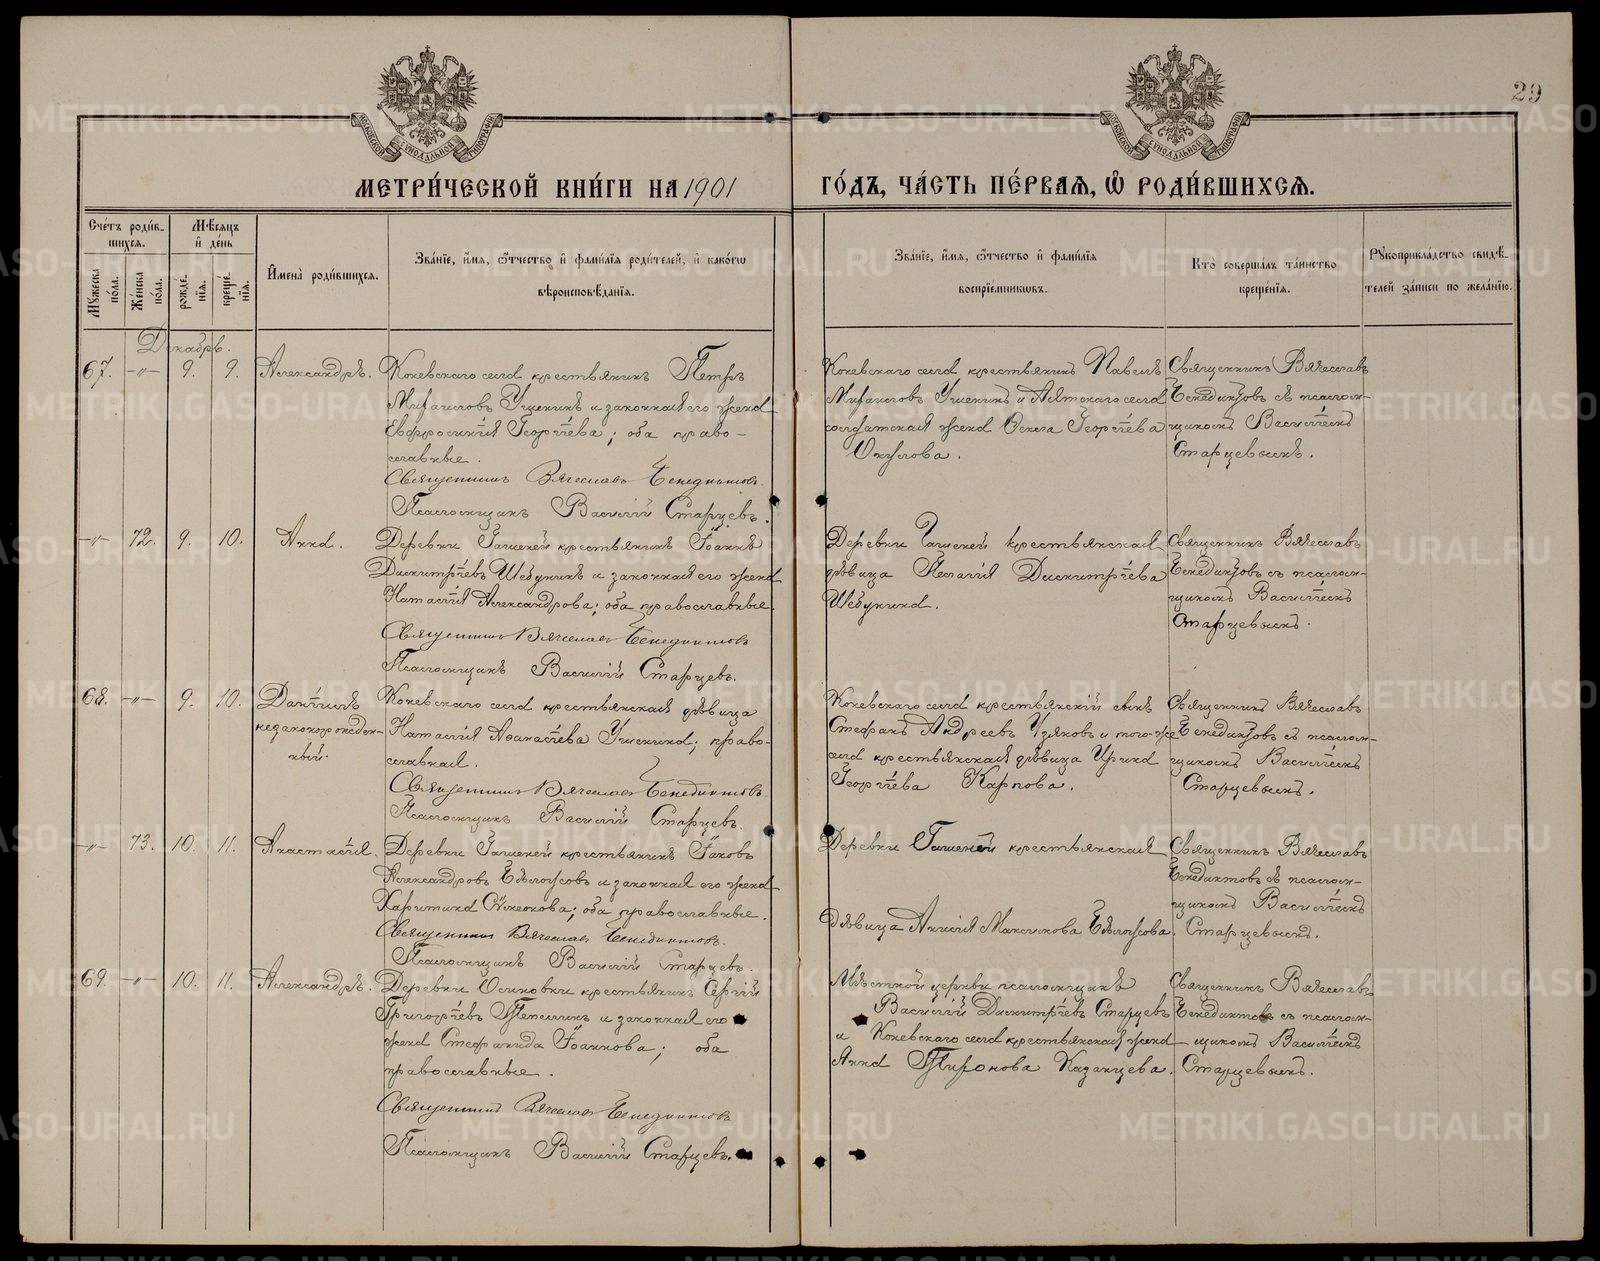 29
МОСКОВСКОЙ СѴНОДАЛЬНОЙ ТИПОГРАФІИ
МОСКОВСКОЙ СѴНОДАЛЬНОЙ ТИПОГРАФІИ
МЕТРИ́ЧЕСКОЙ КНИ́ГИ НА 1901 ГО́ДЪ, ЧА́СТЬ ПЕ́РВАѦ, Ѡ РОДИ́ВШИХСѦ.
Сче́тъ роди́в-
шихся.
Мѣ́сяцъ
и де́нь
Мꙋжеска по́ла.
Же́нска по́ла.
рожде́-
нїя.
креще́-
нїя.
Имена̀ роди́вшихся.
Зва́нїе, и́мя, ѻ҆́тчество и фами́лїя роди́телей, и како́гѡ
вѣроисповѣ́данїя.
Зва́нїе, и́мя, ѻ҆́тчество и фами́лїя
воспрїе́мникѡвъ.
Кто̀ соверша́лъ та́инство
креще́нїя.
Рꙋкоприкла́дство свидѣ́-
телей за́писи по жела́нїю.
Декабрь.
67. -„- 9. 9. Александръ.
Коневскаго села крестьянинъ Петръ
Михаиловъ Ушенинъ и законная его жена
Евфросинія Георгіева; оба право-
славные.
Священникъ Вячеславъ Бенедиктовъ.
Псаломщикъ Василій Старцевъ.
Коневскаго села крестьянинъ Павелъ
Михаиловъ Ушенинъ и Аятскаго села
солдатская жена Георгіева
Окулова.
Священникъ Вячеславъ
Бенедиктовъ съ псалом-
щикомъ Василіемъ
Старцевымъ.
-„- 72. 9. 10. Анна.
Деревни Гашеней крестьянинъ Іоаннъ
Димитріевъ Шебунинъ и законная его жена
Наталія Александрова; оба православные.
Священникъ Вячеславъ Бенедиктовъ
Псаломщикъ Василій Старцевъ.
Деревни Гашеней крестьянская
дѣвица Пелагія Димитріева
Шебунина.
Священникъ Вячеславъ
Бенедиктовъ съ псалом-
щикомъ Василіемъ
Старцевымъ.
68. -„- 9. 10. Даніилъ
незаконорожден-
ный.
Коневскаго села крестьянская дѣвица
Наталія Аѳанасіева Ушенина; право-
славная.
Священникъ Вячеславъ Бенедиктовъ
Псаломщикъ Василій Старцевъ.
Коневскаго села крестьянскій сынъ
Стефанъ Андреевъ Узяковъ и того-же
села крестьянская дѣвица Ирина
Георгіева Карпова.
Священникъ Вячеславъ
Бенедиктовъ съ псалом-
щикомъ Василіемъ
Старцевымъ.
-„- 73. 10. 11. Анастасія.
Деревни Гашеней крестьянинъ Іаковъ
Александровъ Бѣлоусовъ и законная его жена
Харитина Сѵмеонова; оба православные.
Священникъ Вячеславъ Бенедиктовъ.
Псаломщикъ Василій Старцевъ.
Деревни Гашеней крестьянская
дѣвица Анисія Максимова Бѣлоусова.
Священникъ Вячеславъ
Бенедиктовъ съ псалом-
щикомъ Василіемъ
Старцевымъ.
69. -„- 10. 11. Александръ.
Деревни Осиновки крестьянинъ Сергій
Григоріевъ Пепелинъ и законная его
жена Стефанида Іоаннова; оба
православные.
Священникъ Вячеславъ Бенедиктовъ
Псаломщикъ Василій Старцевъ.
Мѣстной церкви псаломщикъ
Василій Димитріевъ Старцевъ
и Коневскаго села крестьянская жена
Анна Казанцева.
Священникъ Вячеславъ
Бенедиктовъ съ псалом-
щикомъ Василіемъ
Старцевымъ.
METRIKI.GASO-URAL.RU